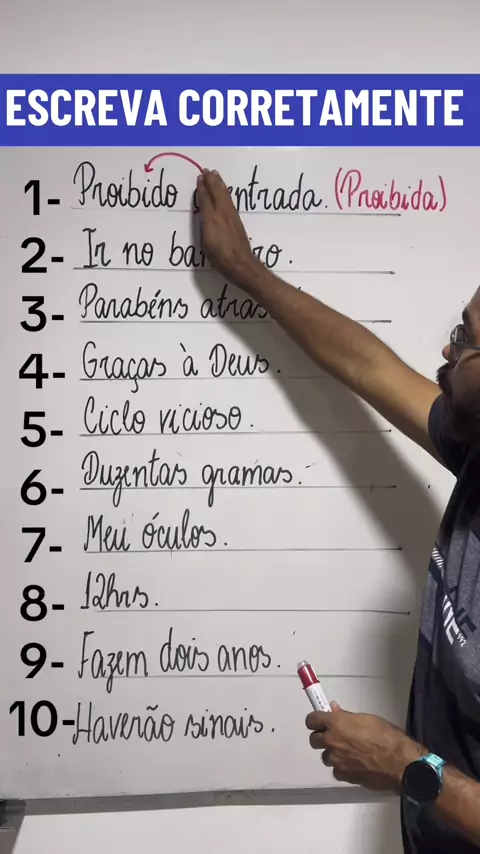 ESCREVA CORRETAMENTE
1- Proibido entrada. (Proibida)
2- Ir no
3- Parabéns
4- Graças à Deus.
5- Ciclo vicioso.
6- Duzentas gramas.
7- Meu óculos.
8- 12hrs.
9- Fazem dois anos.
10- Haverão sinais.